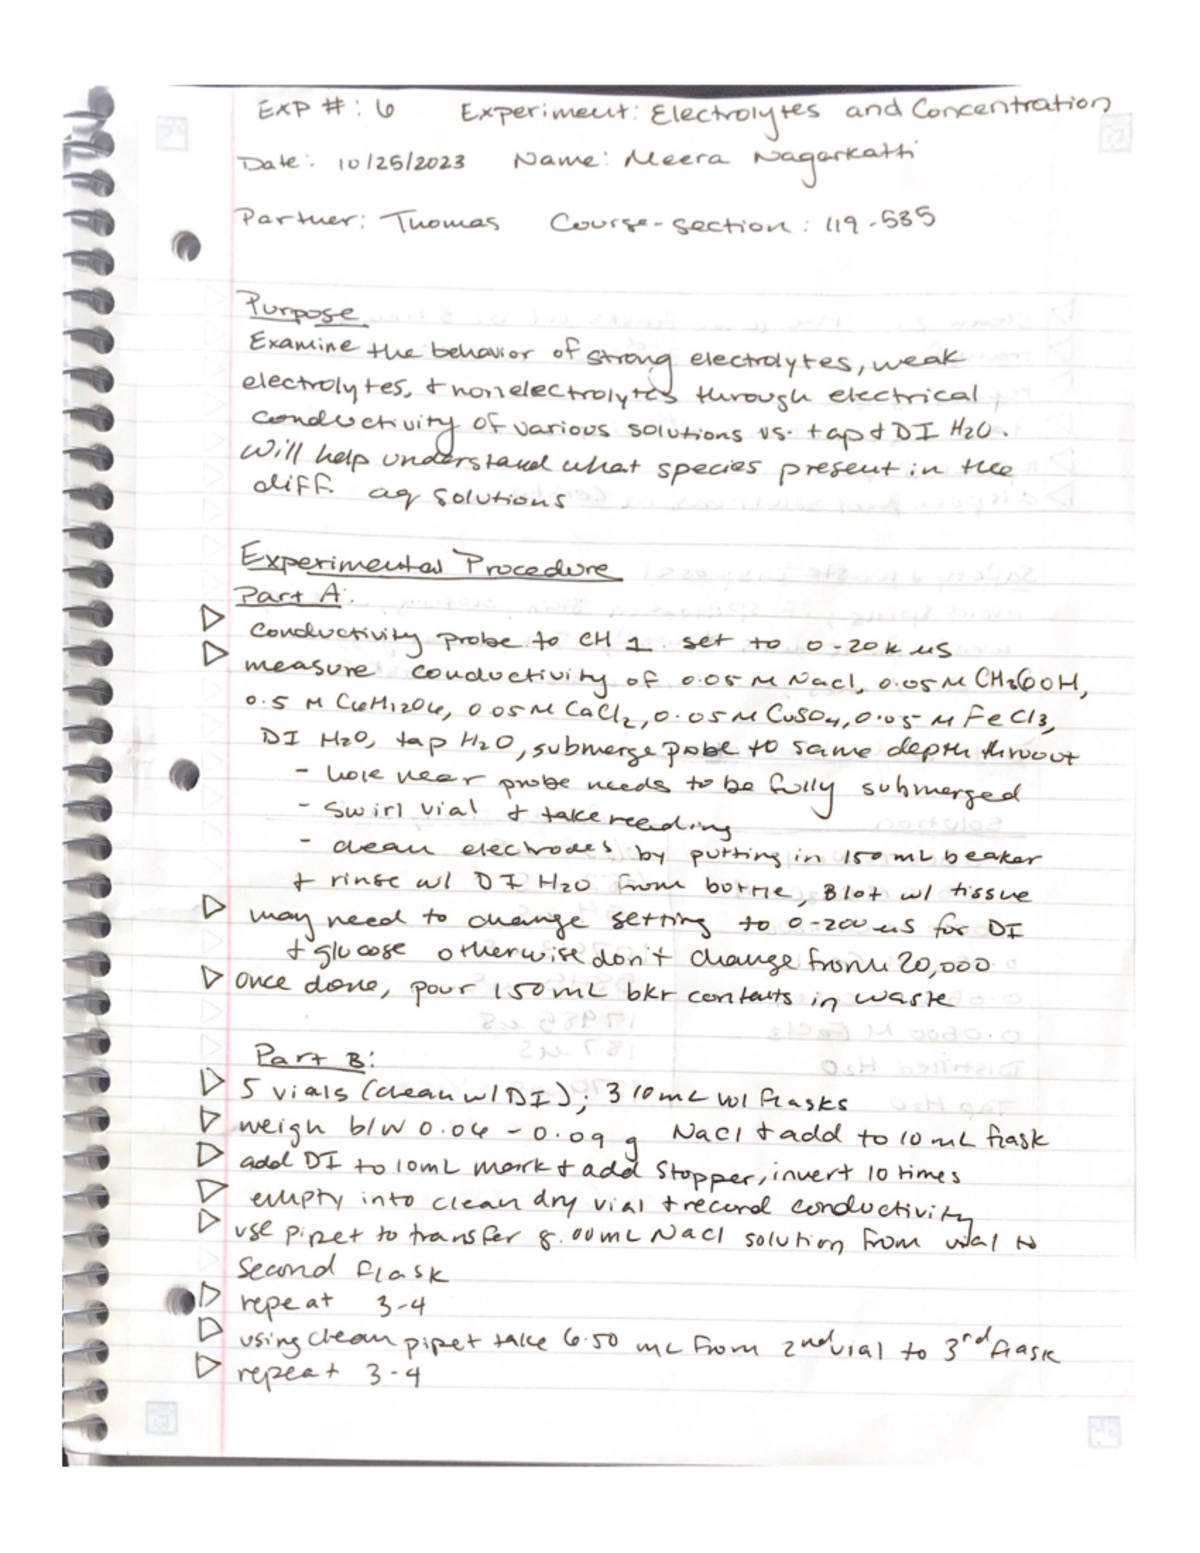 Exp #: 6 Experiment: Electrolytes and Concentration
Date: 10/25/2023 Name: Meera Nagarkatti
Partner: Thomas Course-section: 119-535
Purpose
Examine the behavior of strong electrolytes, weak
electrolytes, + nonelectrolytes through electrical
conductivity of various solutions vs. tap + DI H2O.
Will help understand what species present in the
diff. aq solutions
Experimental Procedure
Part A:
▷ Conductivity probe to CH 1 set to 0-20k uS
▷ measure conductivity of 0.05 M NaCl, 0.05 M CH3COOH,
0.5 M C6H12O6, 0.05 M CaCl2, 0.05 M CuSO4, 0.05 M FeCl3,
DI H2O, tap H2O, submerge probe to same depth thruout
- hole near probe needs to be fully submerged
- swirl vial + take reading
- clean electrodes by putting in 150 mL beaker
+ rinse w/ DI H2O from bottle, Blot w/ tissue
▷ may need to change setting to 0-200 uS for DI
+ glucose otherwise don't change from 20,000
▷ once done, pour 150 mL bkr contents in waste
Part B:
▷ 5 vials (clean w/ DI); 3 10 mL w/ flasks
▷ weigh b/w 0.06 - 0.09 g NaCl + add to 10 mL flask
▷ add DI to 10mL mark + add stopper, invert 10 times
▷ empty into clean dry vial + record conductivity
▷ use pipet to transfer 8.00 mL NaCl solution from vial to
second flask
▷ repeat 3-4
▷ using clean pipet take 6.50 mL from 2nd vial to 3rd flask
▷ repeat 3-4